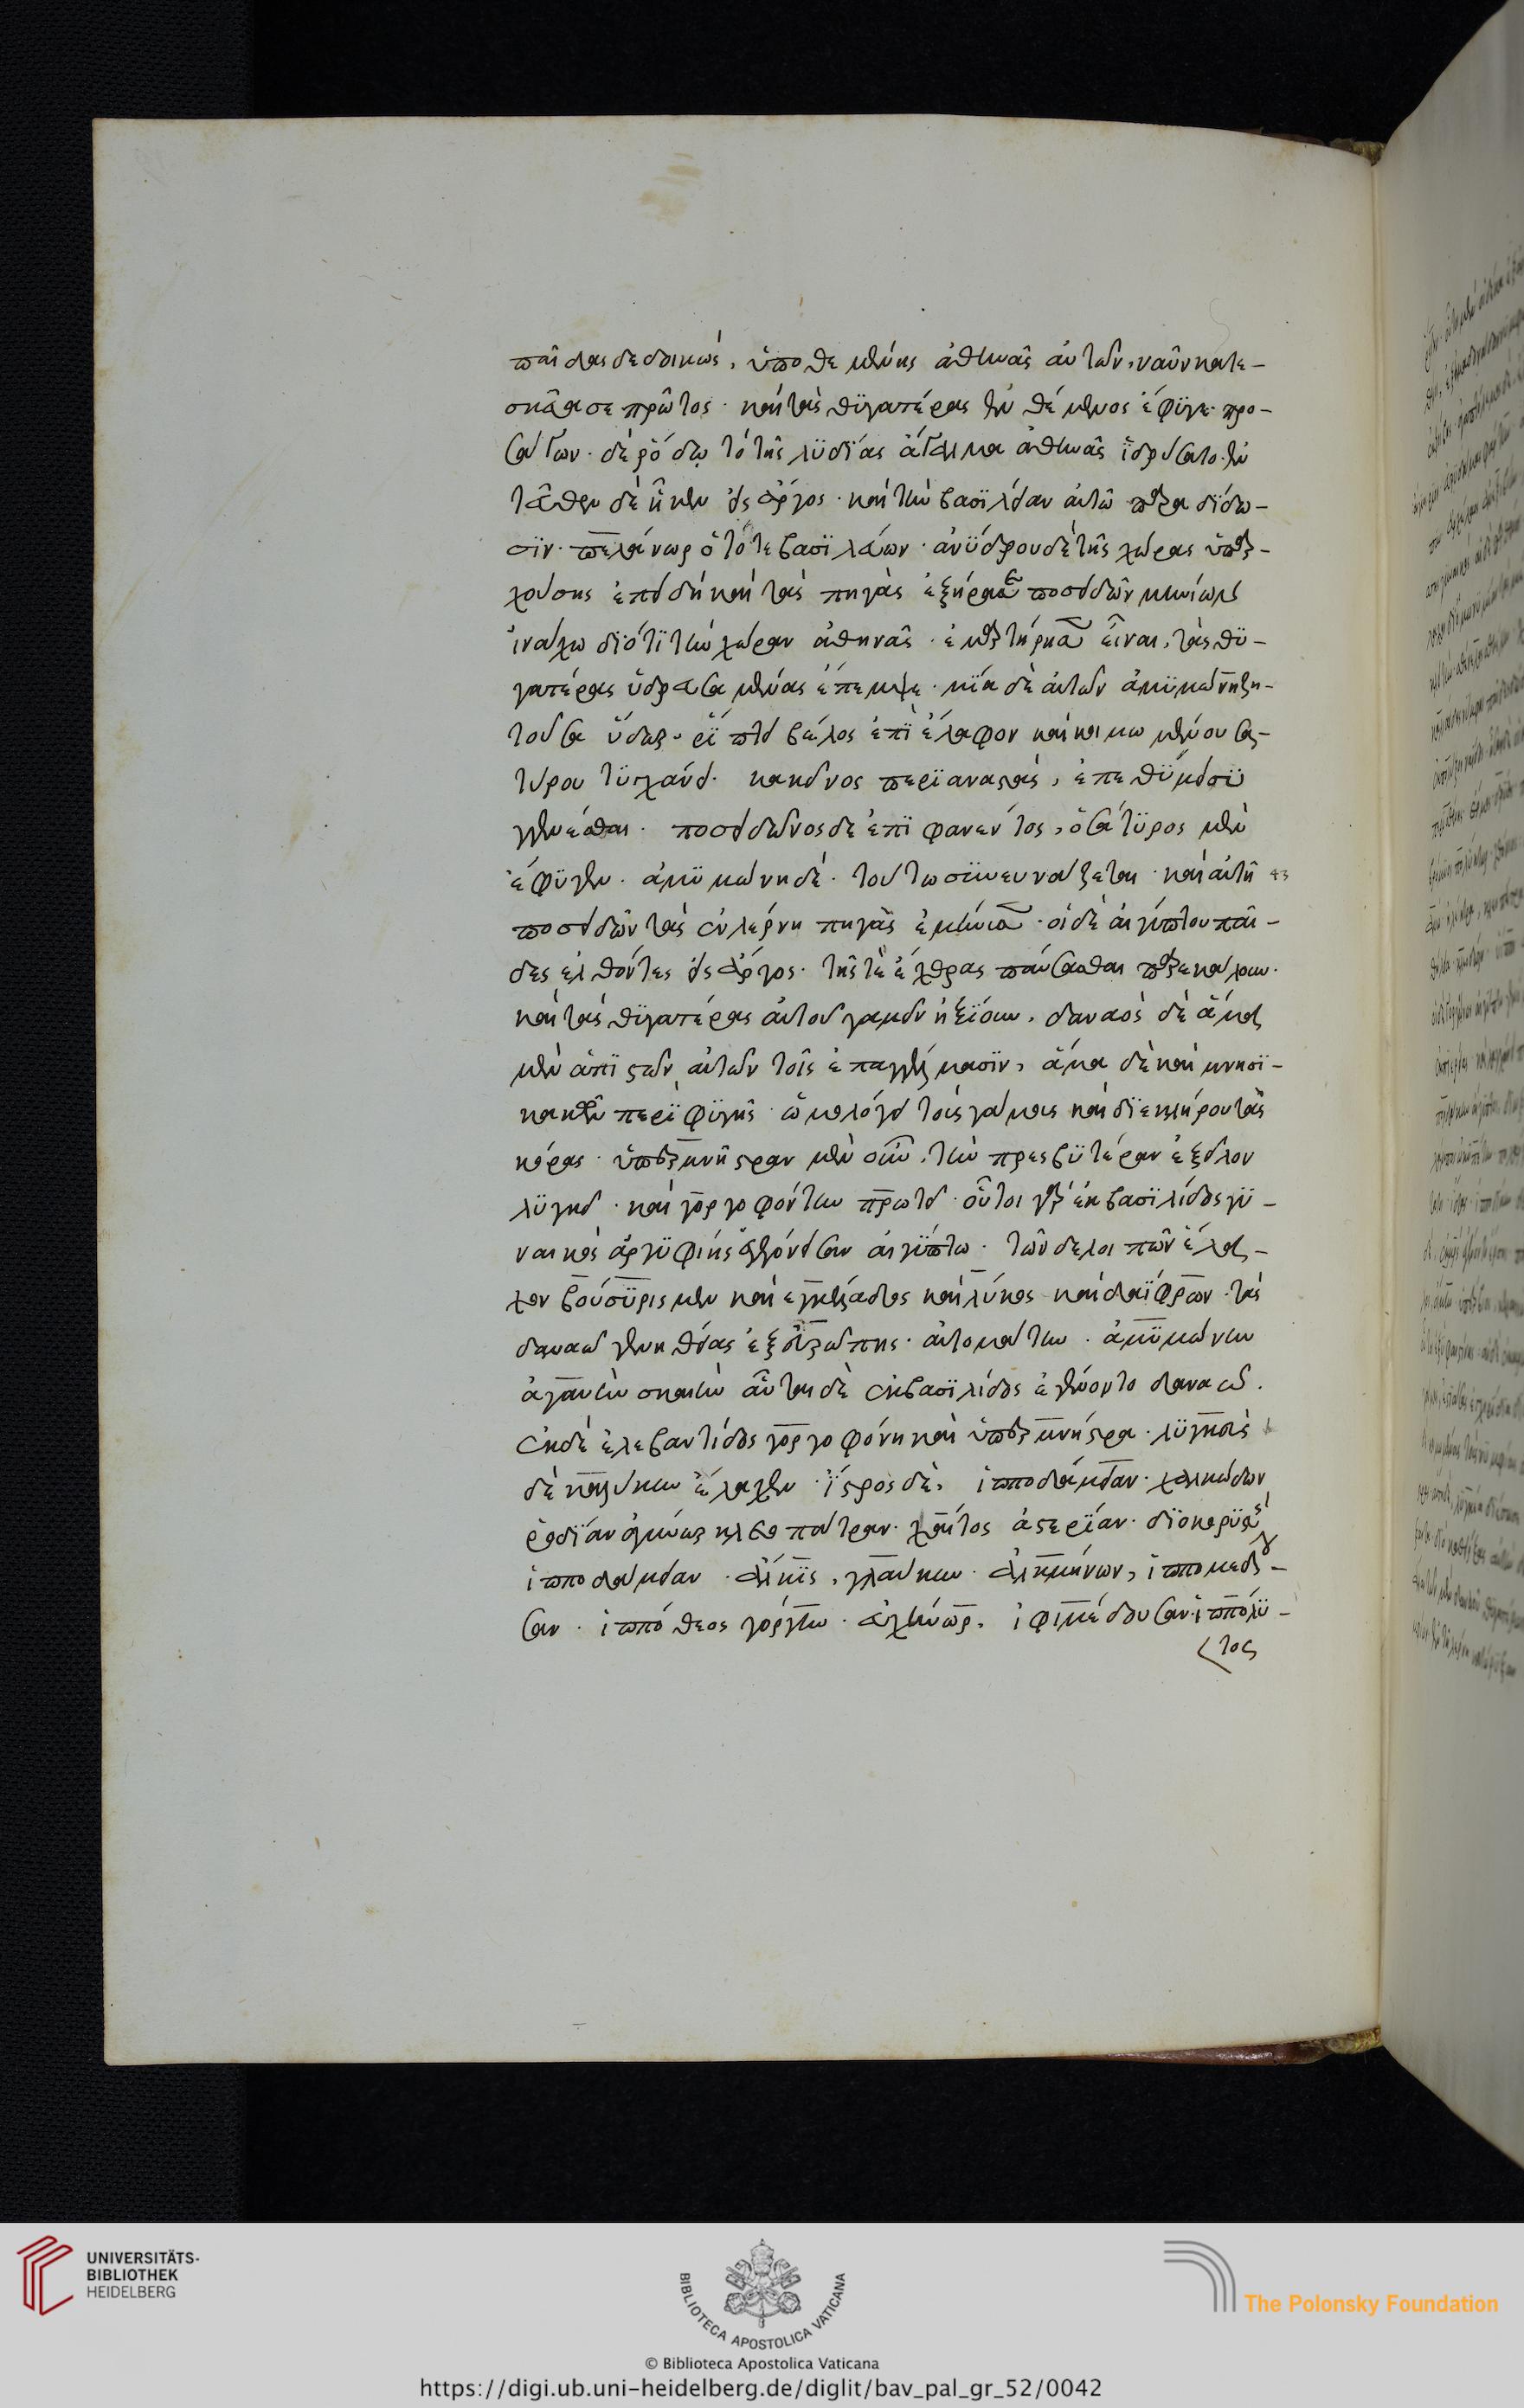 παῖδας δεδοικὼς, ὑποθεμένης ἀθηνᾶς αὐτῶν, ναῦν κατε-
σκεύασε πρῶτος. καὶ τὰς θϋγατέρας ἐνθέμενος ἔφϋγε. προ-
σα των. δὲ ῥόδῳ τὸ τῆς λϋδΐας ἄγαλμα ἀθηνᾶς ἵδρύσατο. ἐν
τεῦθεν δὲ ἧκεν εἰς ἄργος. καὶ τὴν βασϊλείαν αὐτῶ παραδΐδω-
σϊν. πελάνωρ ὁ τότε βασϊλεύων. ἀνΰδρου δὲ τῆς χώρας ὑπαρ-
χούσης ἐπειδὴ καὶ τὰς πηγὰς ἐξήρανε ποσειδῶν μηνίων
ἰνάχω δϊότϊ τὴν χώραν ἀθηνᾶς. ἐμαρτύρησεν εἶναι, τὰς θϋ-
γατέρας ὑδρευσαμένας ἔπεμψε. μΐα δὲ αὐτῶν ἀμϋμώνη ζη-
τοῦσα ὕδωρ. ῥΐπτει βέλος ἐπὶ ἔλαφον καὶ κοιμωμένου σα-
τύρου τϋγχάνει. κακεῖνος περϊαναστὰς, ἐπεθΰμει σϋ
γγενέσθαι. ποσειδῶνος δὲ ἐπϊφανέντος, ὁ σάτϋρος μὲν
ἔφϋγεν. ἀμϋμώνη δὲ. τούτω σϋνευνάζεται. καὶ αὐτῆ
ποσειδῶν τὰς ἐν λέρνη πηγὰς ἐμήνυσεν. οἱ δὲ αἰγύπτου παῖ-
δες ἐλθόντες εἰς ἄργος. τῆς τὲ ἔχθρας παύσασθαι παρεκάλουν.
καὶ τὰς θϋγατέρας αὐτοῦ γαμεῖν ἠξΐουν. δαναὸς δὲ ἅμα
μὲν ἀπϊστῶν αὐτῶν τοῖς ἐπαγγέλμασϊν, ἅμα δὲ καὶ μνησϊ-
κακῶν περϊ φϋγῆς ὡμολόγει τοὺς γάμους καὶ δϊεκλήρου τὰς
κόρας. ὑπερμνήστραν μὲν οὖν. τὴν πρεσβϋτέραν ἐξεῖλον
λϋγκεῖ. καὶ γοργοφόνην πρωτεῖ. οὗτοι γὰρ ἐκ βασϊλίδος γϋ-
ναικὸς ἀργϋφίης ἐγεγόνεισαν αἰγΰπτω. τῶν δὲ λοιπῶν ἔλα-
χον βούσϋρις μὲν καὶ ἐγκέλαδος καὶ λύκος καὶ δαΐφρων. τὰς
δαναῶ γενηθείσας ἐξ εὐρώπης. αὐτομάτην. ἀμϋμώνην
ἀγαυὴν σκαιὴν αὗται δὲ ἐκ βασϊλίδος ἐγένοντο δαναῶ.
ἐκ δὲ ἐλεβαντίδος γοργοφόνη καὶ ὑπερμνήστρα. λϋγκεὺς
δὲ καλύκην ἔλαχεν. ΐστρος δὲ, ἱπποδάμειαν. χαλκώδων
ῥοδΐαν ἀγήνωρ κλεοπάτραν. χαῖτος ἀστερΐαν. δϊοκορϋστὴς
ἱπποδάμειαν. ἄλκϊς, γλαύκην. ἀλκμήνων, ἱππομέδου-
σαν. ἱππόθεος γόργην. εὐχήνωρ. ἰφιμέδουσαν. ἱππόλϋ-
τος
43
UNIVERSITÄTS-
BIBLIOTHEK
HEIDELBERG
BIBLIOTECA APOSTOLICA VATICANA
The Polonsky Foundation
© Biblioteca Apostolica Vaticana
https://digi.ub.uni-heidelberg.de/diglit/bav_pal_gr_52/0042